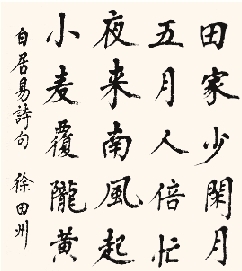 田家少閑月
五月人倍忙
夜来南風起
小麦覆隴黄
白居易詩句 徐田州